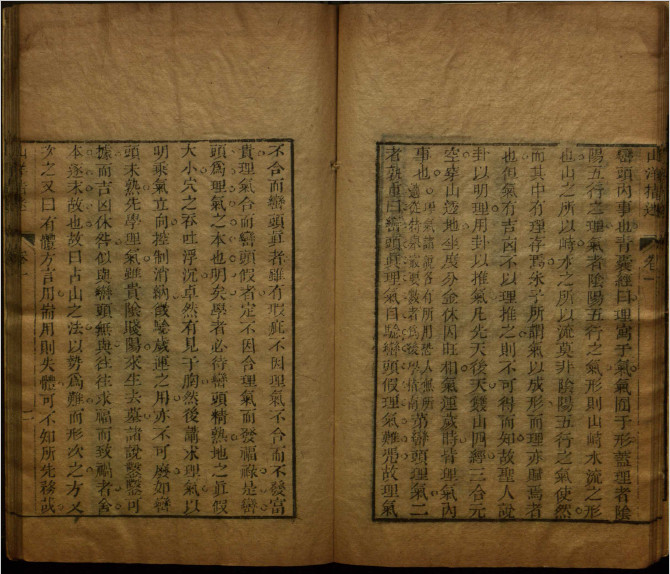 山洋指迷 卷一
巒頭內事也青囊經曰理寓于氣氣囿于形蓋理者陰
陽五行之理氣者陰陽五行之氣形則山峙水流之形
也山之所以峙水之所以流莫非陰陽五行之氣使然
而其中有理存焉朱子所謂氣以成形而理亦賦焉者
也但氣有吉凶不以理推之則不可得而知故聖人說
卦以明理用卦以推氣凡先天後天雙山四經三合元
空穿山透地坐度分金休囚旺相氣運歲時皆理氣內
事也諸氣各有所用恐人無所適從最要緊者為後學指南第巒頭理氣二
者孰重曰巒頭真理氣自驗巒頭假理氣難憑故理氣
不合而巒頭真者雖有形疵不因理氣不合而不發富
貴理氣合而巒頭假者定不因合理氣而發福祿是巒
頭為理氣之本也明矣學者必待巒頭精熟地之真假
大小穴之吞吐浮沉卓然有見于胸然後講求理氣以
明乘氣立向控制消納徵驗歲運之用亦不可廢如巒
頭未熟先學理氣雖貴陰賤陽來生去墓諸說鑿鑿可
據而吉凶休咎似與巒頭無與往往求福而致禍者舍
本逐末故也故曰占山之法以勢為難而形次之方又
次之又曰有體方言用用則失體可不知所先務哉
山洋指迷 卷一 二